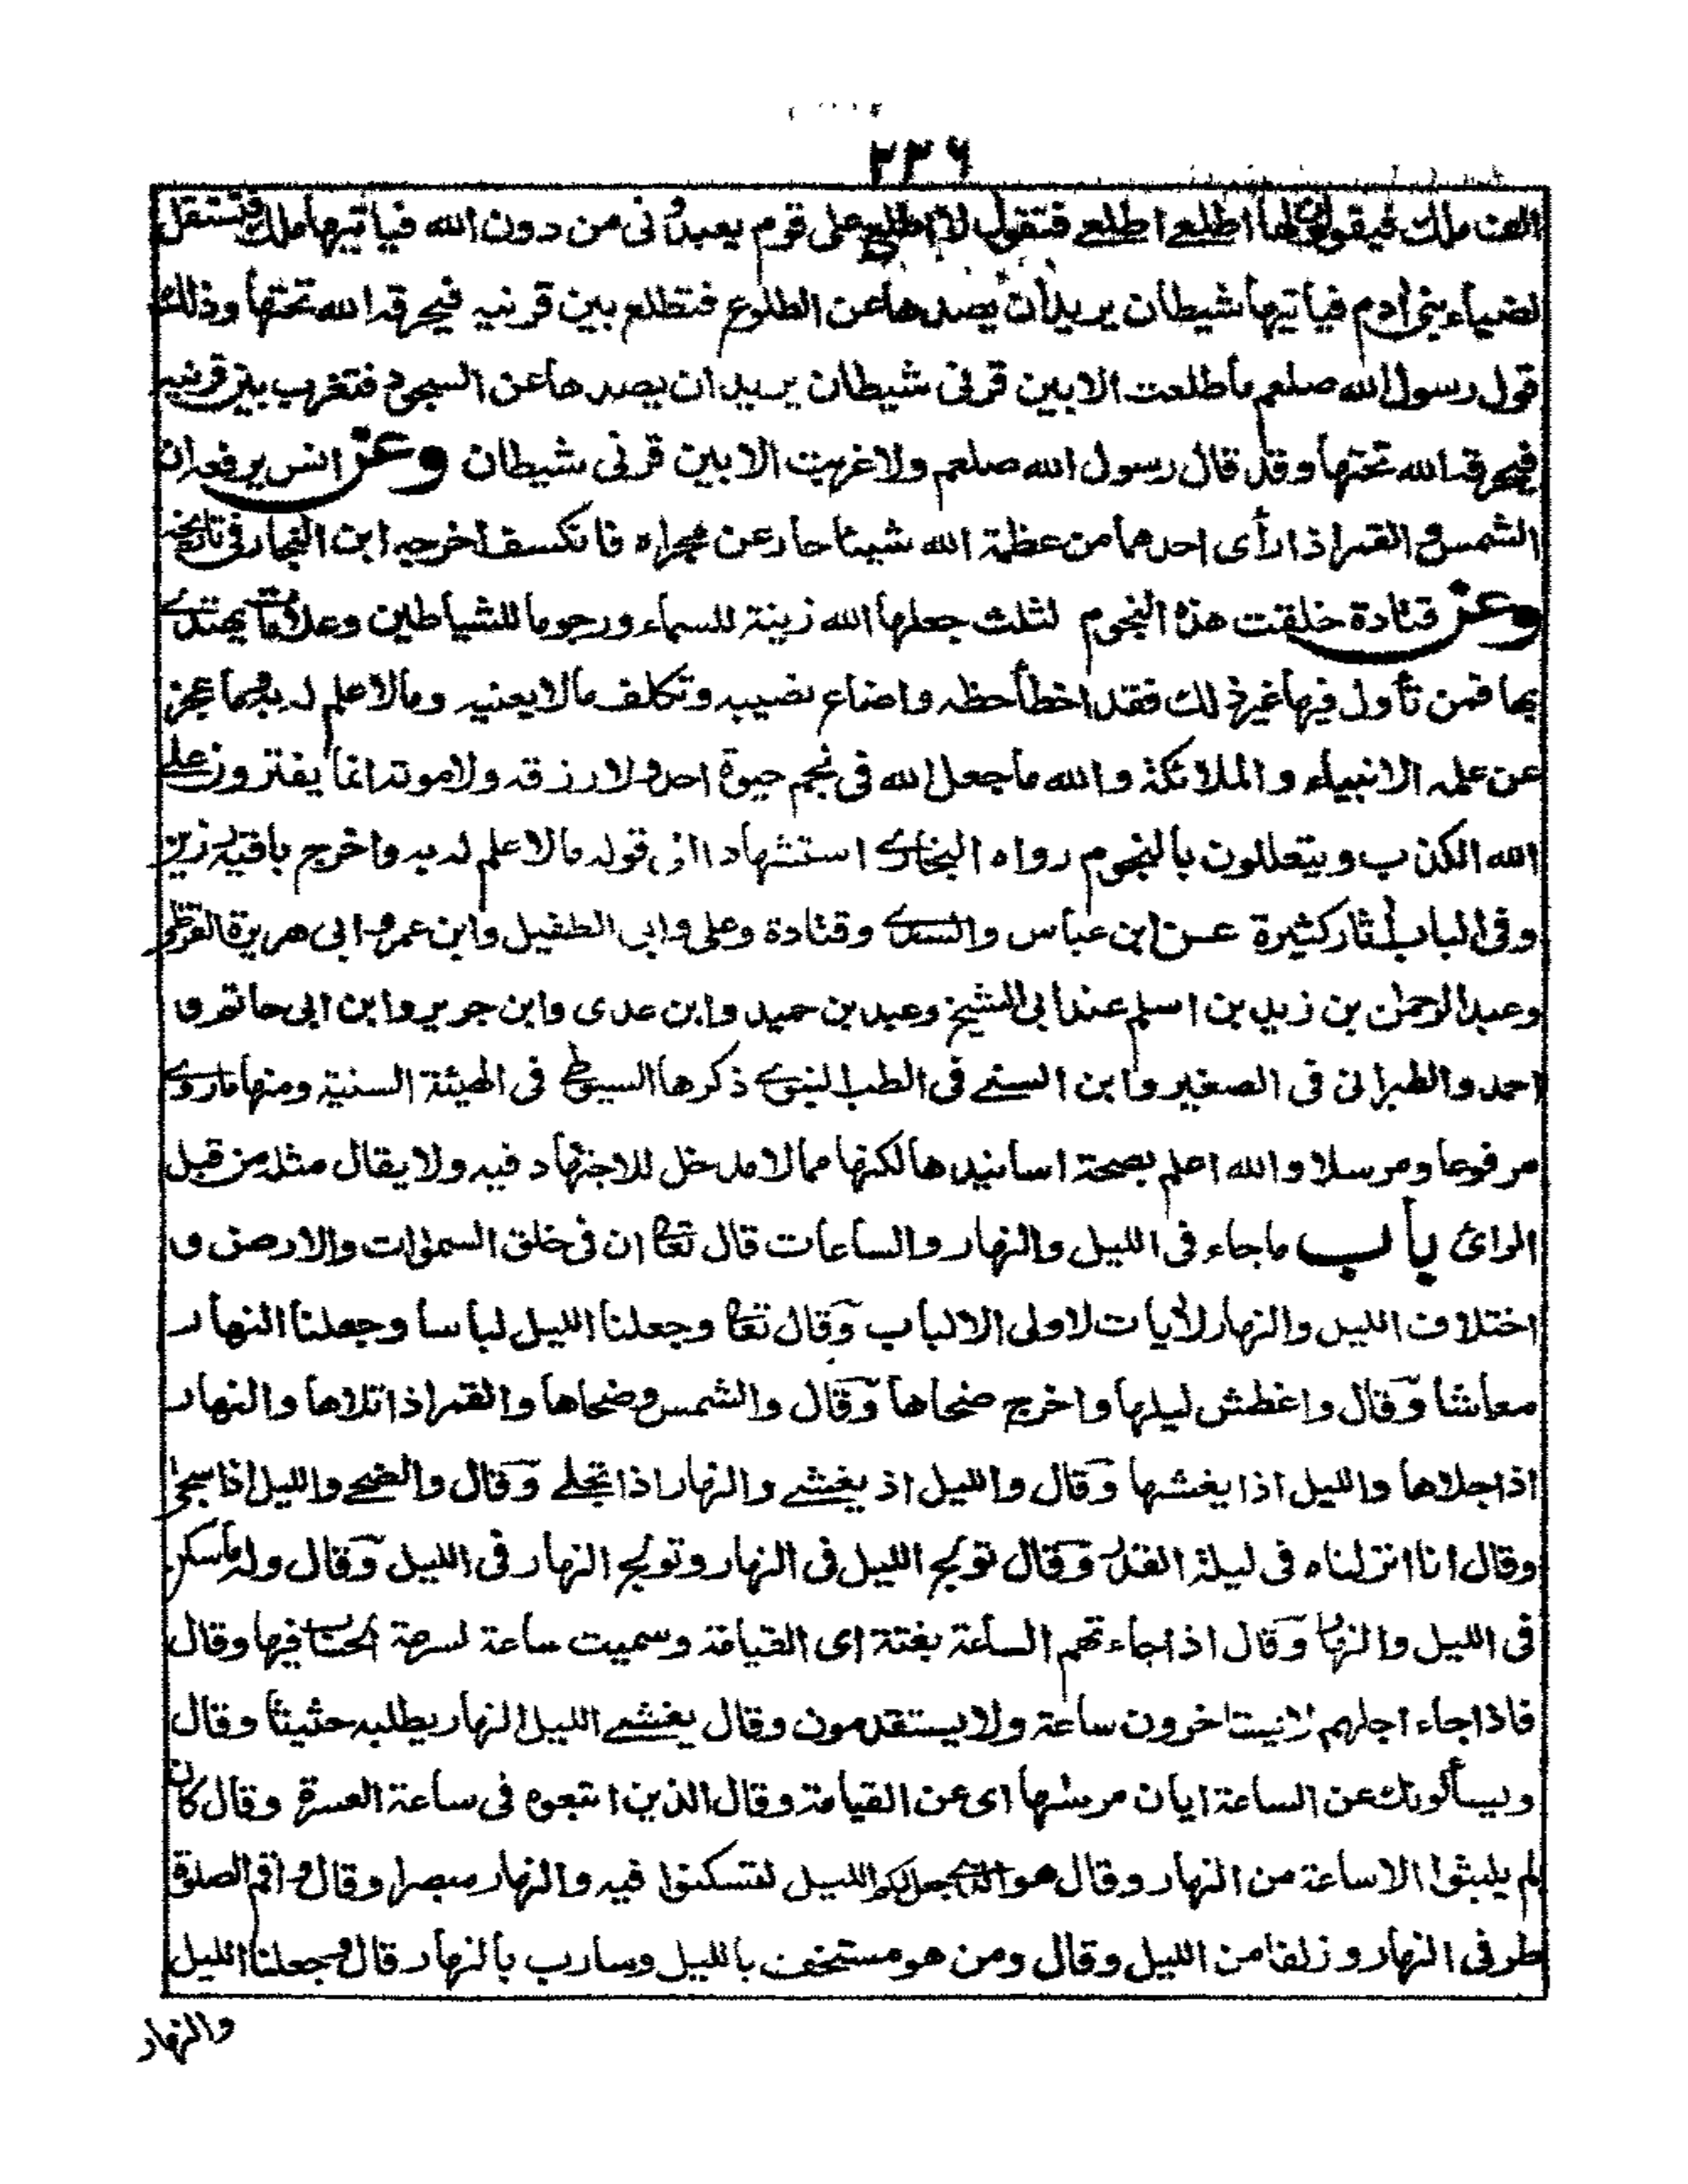 ٢٣٦
الف ملك فيقولون لها اطلعى اطلعى فتقول لا اطلع على قوم يعبدونى من دون الله فياتيها ملك فتستقل
لضياء بنى ادم فياتيها شيطان يريد أن يصدها عن الطلوع فتطلع بين قرنيه فيحرقه الله تحتها وذلك
قول رسول الله صلعم ما طلعت الا بين قرنى شيطان يريد ان يصدها عن السجود فتغرب بين قرنيه
فيحرقه الله تحتها وقد قال رسول الله صلعم ولا غربت الا بين قرنى شيطان وعن انس يرفعه ان
الشمس والقمر اذا رأى احدهما من عظمة الله شيئا حار عن مجراه فانكسف اخرجه ابن النجار فى تاريخه
وعن قتادة خلقت هذه النجوم لثلث جعلها الله زينة للسماء ورجوما للشياطين وعلامات يهتدى
بها فمن تأول فيها غير ذلك فقد اخطأ حظه واضاع نصيبه وتكلف مالا يعنيه ومالا علم له به وما عجز
عن علمه الانبياء والملائكة والله ما جعل الله فى نجم حيوة احد ولا رزقه ولا موته انما يفترون على
الله الكذب ويتعللون بالنجوم رواه البخارى استشهادا الى قوله مالا علم له به واخرج باقيه رزين
وفى الباب أثار كثيرة عن ابن عباس والسدى وقتادة وعلى وابى الطفيل وابن عمر وابى هريرة القرظى
وعبد الرحمن بن زيد بن اسلم عند ابى الشيخ وعبد بن حميد وابن عدى وابن جرير وابن ابى حاتم و
احمد والطبرانى فى الصغير وابن السنى فى الطب النبوى ذكرها السيوطى فى الهيئة السنية ومنها ما روى
مرفوعا ومرسلا والله اعلم بصحة اسانيدها لكنها مما لا مدخل للاجتهاد فيه ولا يقال مثله من قبل
الرائ باب ماجاء فى الليل والنهار والساعات قال تعا ان فى خلق السموات والارض و
اختلاف الليل والنهار لأيات لاولى الالباب وقال تعا وجعلنا الليل لباسا وجعلنا النهار
معاشا وقال واغطش ليلها واخرج ضحاها وقال والشمس وضحاها والقمر اذا تلاها والنهار
اذا جلاها والليل اذا يغشها وقال والليل اذ يغشى والنهار اذا تجلى وقال والضحى والليل اذا سجى
وقال انا انزلناه فى ليلة القدر وقال تولج الليل فى النهار وتولج النهار فى الليل وقال وله ما سكن
فى الليل والنهار وقال اذا جاءتهم الساعة بغتة اى القيامة وسميت ساعة لسرعة الحساب فيها وقال
فاذا جاء اجلهم لا يستاخرون ساعة ولا يستقدمون وقال يغشى الليل النهار يطلبه حثيثا وقال
ويسألونك عن الساعة ايان مرسها اى عن القيامة وقال الذين اتبعوه فى ساعة العسرة وقال كان
لم يلبثوا الا ساعة من النهار وقال هو الذى جعل لكم الليل لتسكنوا فيه والنهار مبصرا وقال واقم الصلوة
طرفى النهار وزلفا من الليل وقال ومن هو مستخف بالليل وسارب بالنهار قال وجعلنا الليل
والنهار